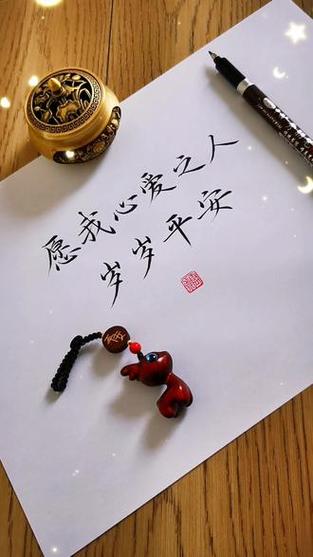 愿我心爱之人
岁岁平安